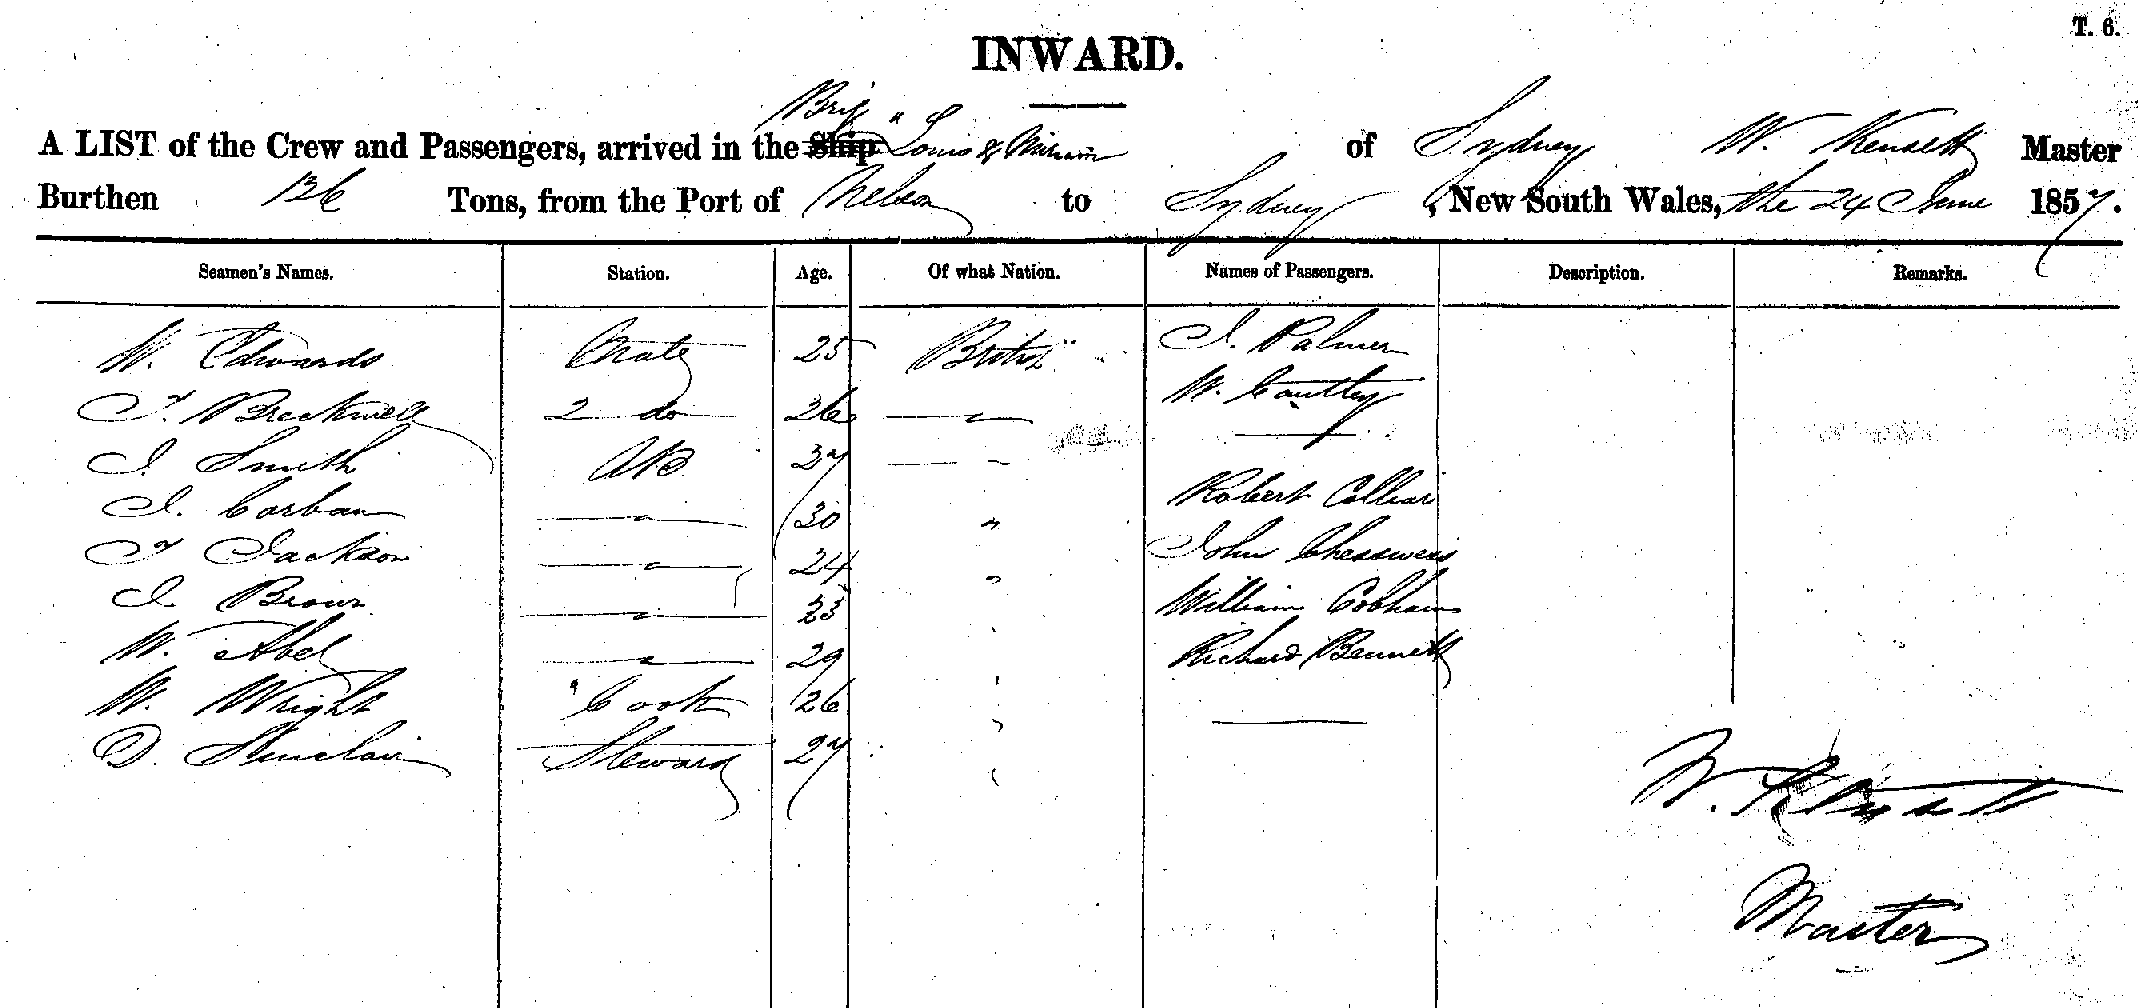 T. 6.
INWARD.
Brig
A LIST of the Crew and Passengers, arrived in the Ship "Louis & Miriam of Sydney W. Kensett Master
Burthen 136 Tons, from the Port of Nelson to Sydney, New South Wales, the 24 June 1857.
Seamen's Names. Station. Age. Of what Nation. Names of Passengers. Description. Remarks.
W. Edwards Mate 25 British J. Palmer
T. Brecknell 2 do 26 " W. Cautley
J. Smith AB 37 "
J. Corban " 30 " Robert Collier
T Jackson " 24 " John
J. Brown " 23 " William Cobham
W. Abel " 29 " Richard Bennett
W. Wright Cook 26 "
D. Sinclair Steward 27 "
W. Kensett
Master